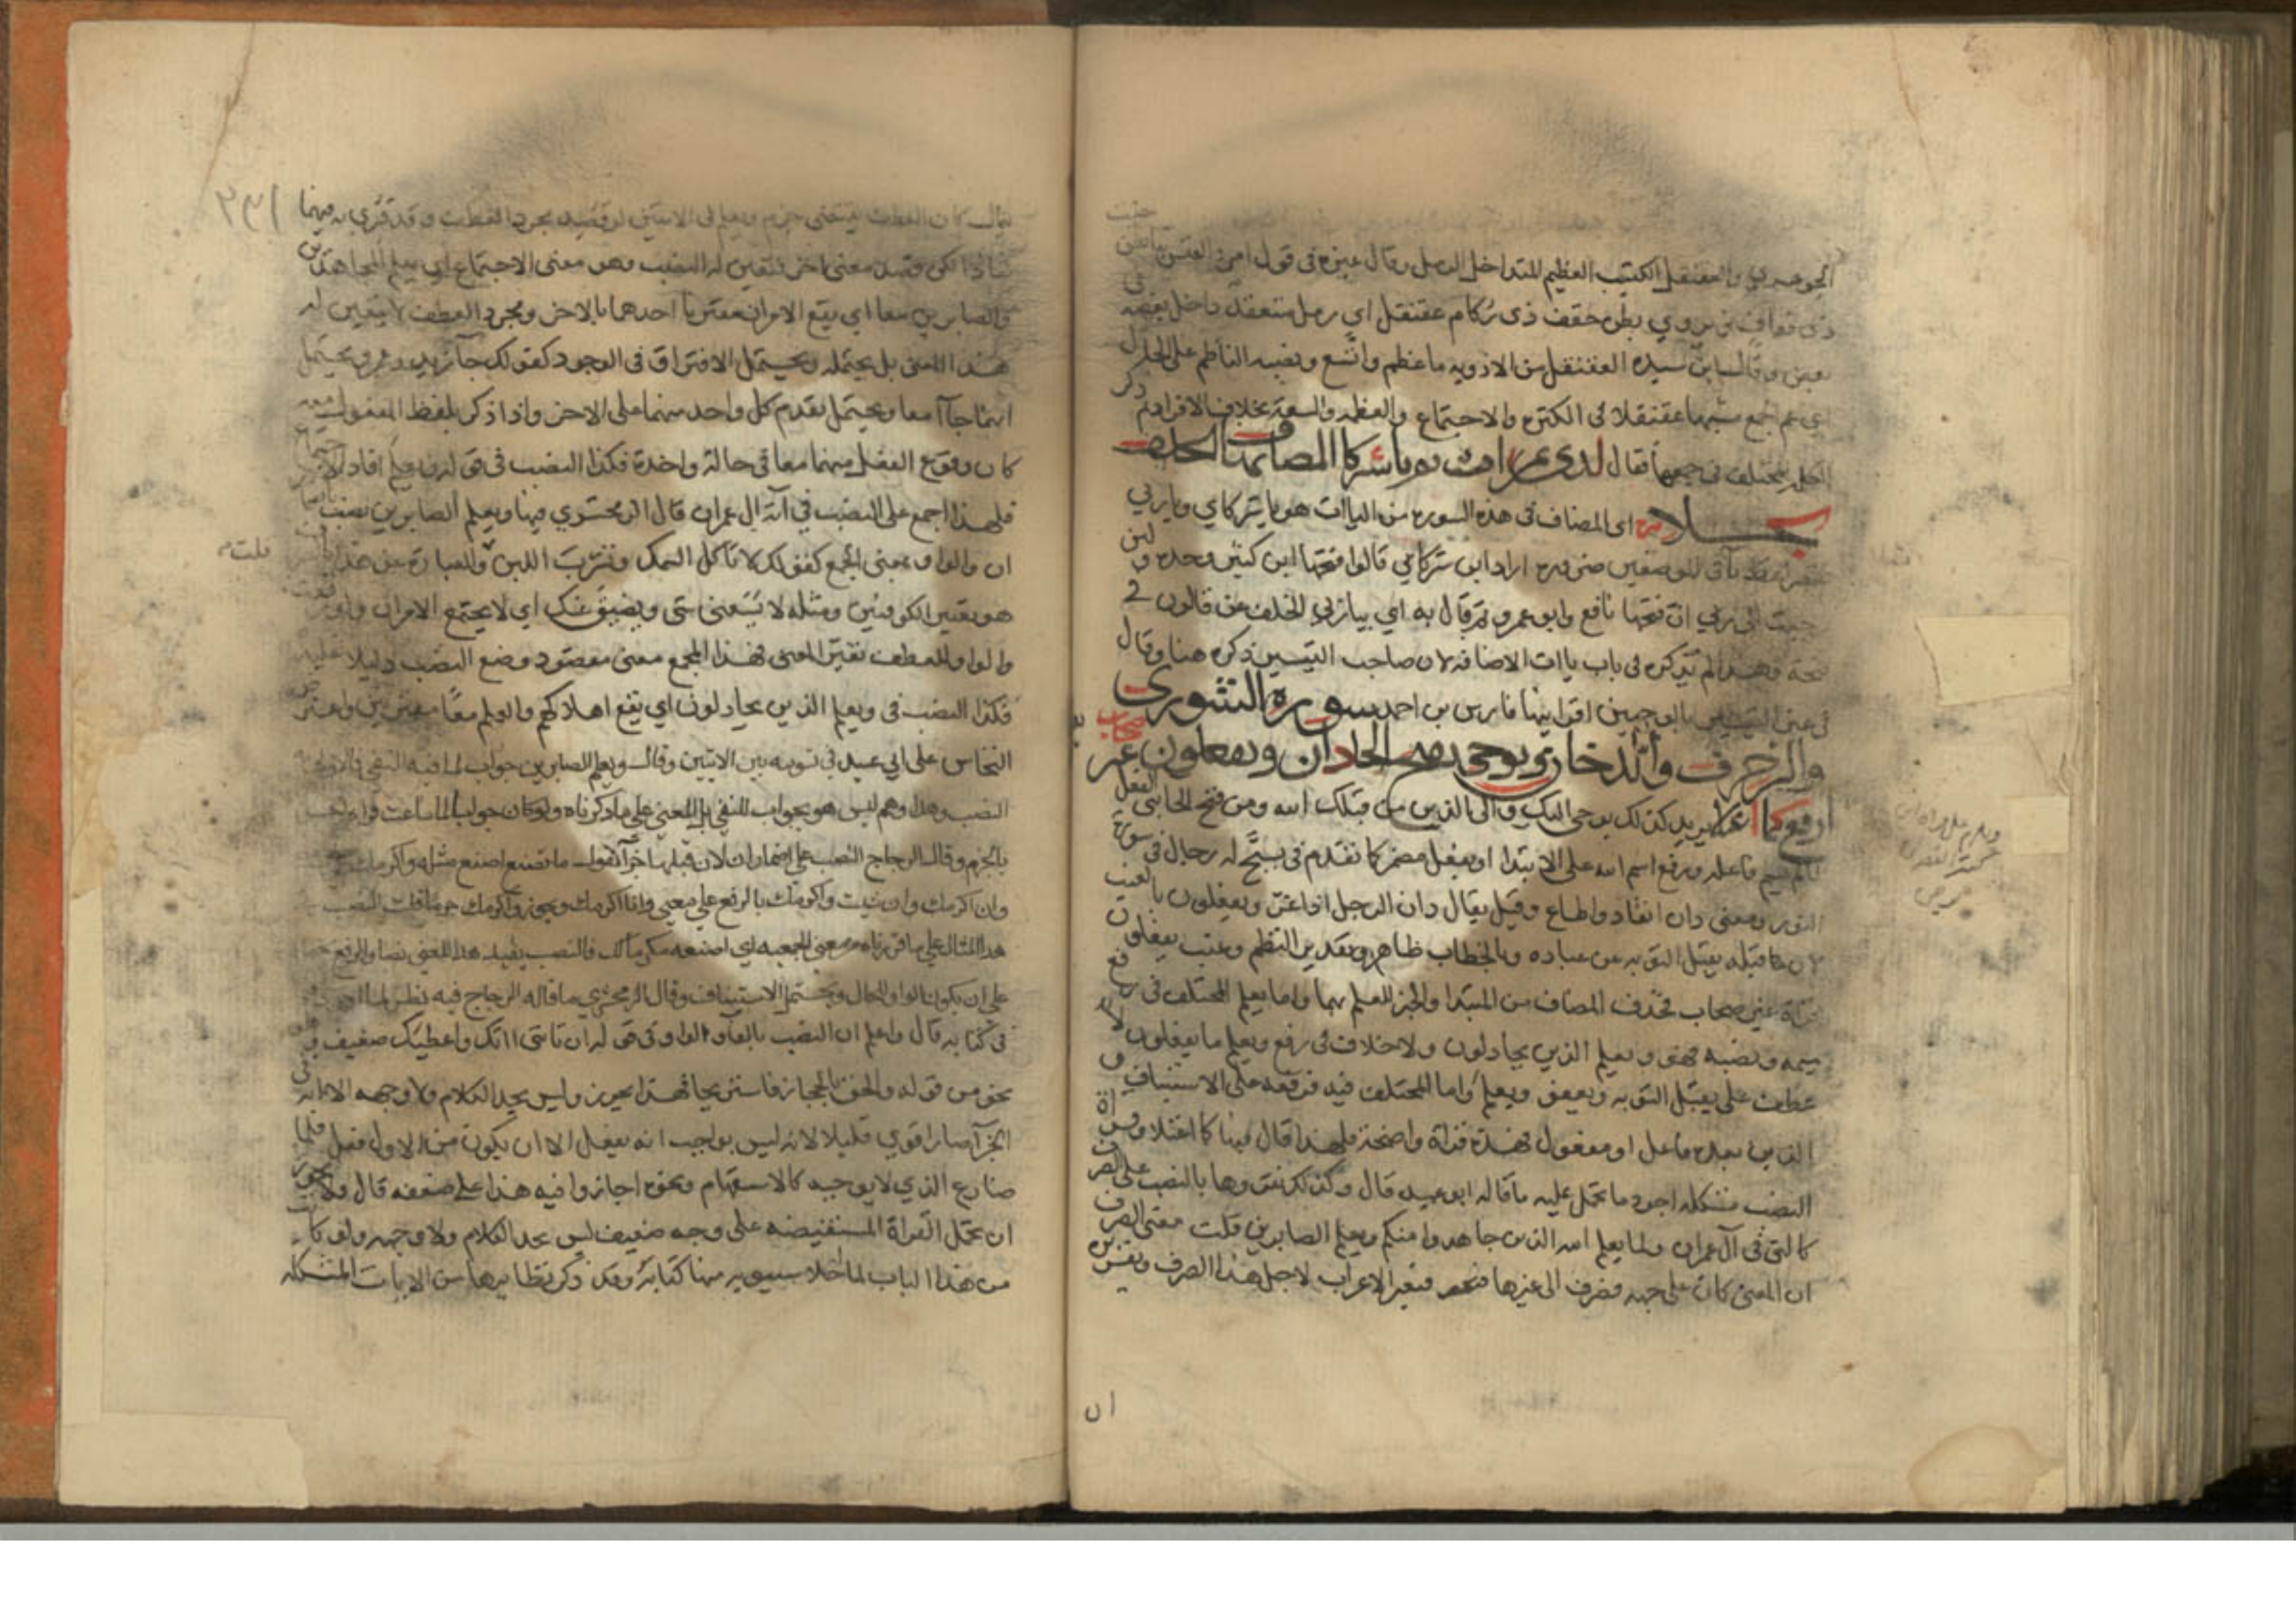 الجوهري والعقنقل الكثيب العظيم المتداخل الرمل وقال غيره في قول امرئ القيس
ذي قفاف بطن حقف ذي ركام عقنقل اي رمل متعقد داخل بعضه في
بعض وقال ابن سيده العقنقل من الاودية ما عظم واتسع ونصبه الناظم على الحال
اي عم اجمع مشبها عقنقلا في الكثرة والاجتماع والعظم والسعة بخلاف الافراد ثم ذكر
المختلف في جمعها فقال لدى ثمرات ثم يا شركا المضاف ويا ربي به الخلف
بجلا اي المضاف في هذه السورة من الياات هو يا شركاي ويا ربي
اراد اين شركاي قالوا فتحها ابن كثير وحده ولئن
رجعت الى ربي ان فتحها نافع وابو عمرو ثم قال به اي بيا ربي الخلف عن قالون
فتحه وهذا لم يذكره في باب ياات الاضافة لان صاحب التيسير ذكره هنا وقال
في غير التيسير بالوجهين اقرانيها فارس بن احمد سورة الشورى
والزخرف والدخان ويوحى بفتح الحا دان ويفعلون غير صحاب
يعلم ارفع كما اعتلا يريد كذلك يوحى اليك والى الذين من قبلك الله ومن فتح الحا بنى الفعل
لما لم يسم فاعله ورفع اسم الله على الابتدا او بفعل مضمر كما تقدم في يسبح له رجال في سورة
النور ومعنى دان انقاد واطاع وقيل يقال دان الرجل اذا عز ويفعلون بالغيب
لان ما قبله يقبل التوبة عن عباده وبالخطاب ظاهر وتقدير النظم وغيب يفعلون
قراة غير صحاب فحذف المضاف من المبتدا والخبر للعلم بهما واما يعلم المختلف في رفع
ميمه ونصبه فهو ويعلم الذين يجادلون ولا خلاف في رفع ويعلم ما يفعلون لانه
عطف على يقبل التوبة ويعفو ويعلم واما المختلف فيه فرفعه على الاستيناف و
الذين بعده فاعل او مفعول فهذه قراة واضحة فلهذا قال فيها كما اعتلا وقراة
النصب مشكلة اجود ما تحمل عليه ما قاله ابو عبيد قال وكذلك نقروها بالنصب على الصرف
كالتي في آل عمران ولما يعلم الله الذين جاهدوا منكم ويعلم الصابرين قلت معنى الصرف
ان المعنى كان على جهة فصرف الى غيرها فتغير الاعراب لاجل هذا الصرف وتفسيره
ان
يقال كان العطف يقتضي جزم ويعلم في الايتين لو قصد مجرد العطف وقد قرئ به فيهما
شاذا لكن قصد معنى اخر فتعين له النصب وهو معنى الاجتماع اي يعلم المجاهدين
والصابرين معا اي يقع الامران مقترنا احدهما بالاخر ومجرد العطف لا يتعين له
هذا المعنى بل يحتمله ويحتمل الافتراق في الوجود كقولك جا زيد وعمرو يحتمل
انهما جاآ معا ويحتمل تقدم كل واحد منهما على الاخر واذا ذكر بلفظ المفعول معه
كان وقوع الفعل منهما معا في حالة واحدة فكذا النصب في قوله ويعلم افاد الاجتماع
فلهذا اجمع على النصب في آية آل عمران قال الزمخشري فيها ويعلم الصابرين نصب باضمار
ان والواو بمعنى الجمع كقولك لا تاكل السمك وتشرب اللبن والعبارة عن هذا
هو تفسير الكوفيين ومثله لا يسعني شي ويضيق عنك اي لا يجتمع الامران
والواو للعطف نفس المعنى فهذا الجمع معنى مقصود وضع النصب دليلا عليه
فكذا النصب في ويعلم الذين يجادلون اي يقع اهلاكهم والعلم معا مقترنين واعترض
النحاس على ابي عبيد في تسويته بين الايتين وقال ويعلم الصابرين جواب لما فيه النفي فالاولى
النصب وهذا وهم ليس هو بجواب للنفي بل المعنى على ما ذكرناه ولو كان جوابا لما ساغت قراة
بالجزم وقال الزجاج النصب على اضمار ان لان قبلها جزآ تقول ما تصنع اصنع مثله واكرمك
وان اكرمك وان شيت واكرمك بالرفع على معنى وانا اكرمك ويجوز واكرمك جزما قلت النصب
هذا المثال على ما قررناه من معنى الجمعية اي اصنعه مكرما لك فالنصب يفيد هذا المعنى نصا والرفع
على ان يكون الواو للحال ويحتمل الاستيناف وقال الزمخشري ما قاله الزجاج فيه نظر لما اورده
في كتابه قال واعلم ان النصب بالفآ والواو في قوله ان تاتني اتك واعطيك ضعيف وهو
نحو من قوله والحق بالحجاز فاستريحا فهذا يجوز وليس بحد الكلام ولا وجهه الا انه
الجزآ صار اقوى قليلا لانه ليس بواجب انه يفعل الا ان يكون من الاول فعل فلما
ضارع الذي لا يوجبه كالاستفهام ونحوه اجازوا فيه هذا على ضعفه قال ولا يجوز
ان تحمل القراة المستفيضة على وجه ضعيف ليس بحد الكلام ولا وجهه ولو كانت
من هذا الباب لما اخلا سيبويه منها كتابه وقد ذكر نظايرها من الايات المشكلة
قلت